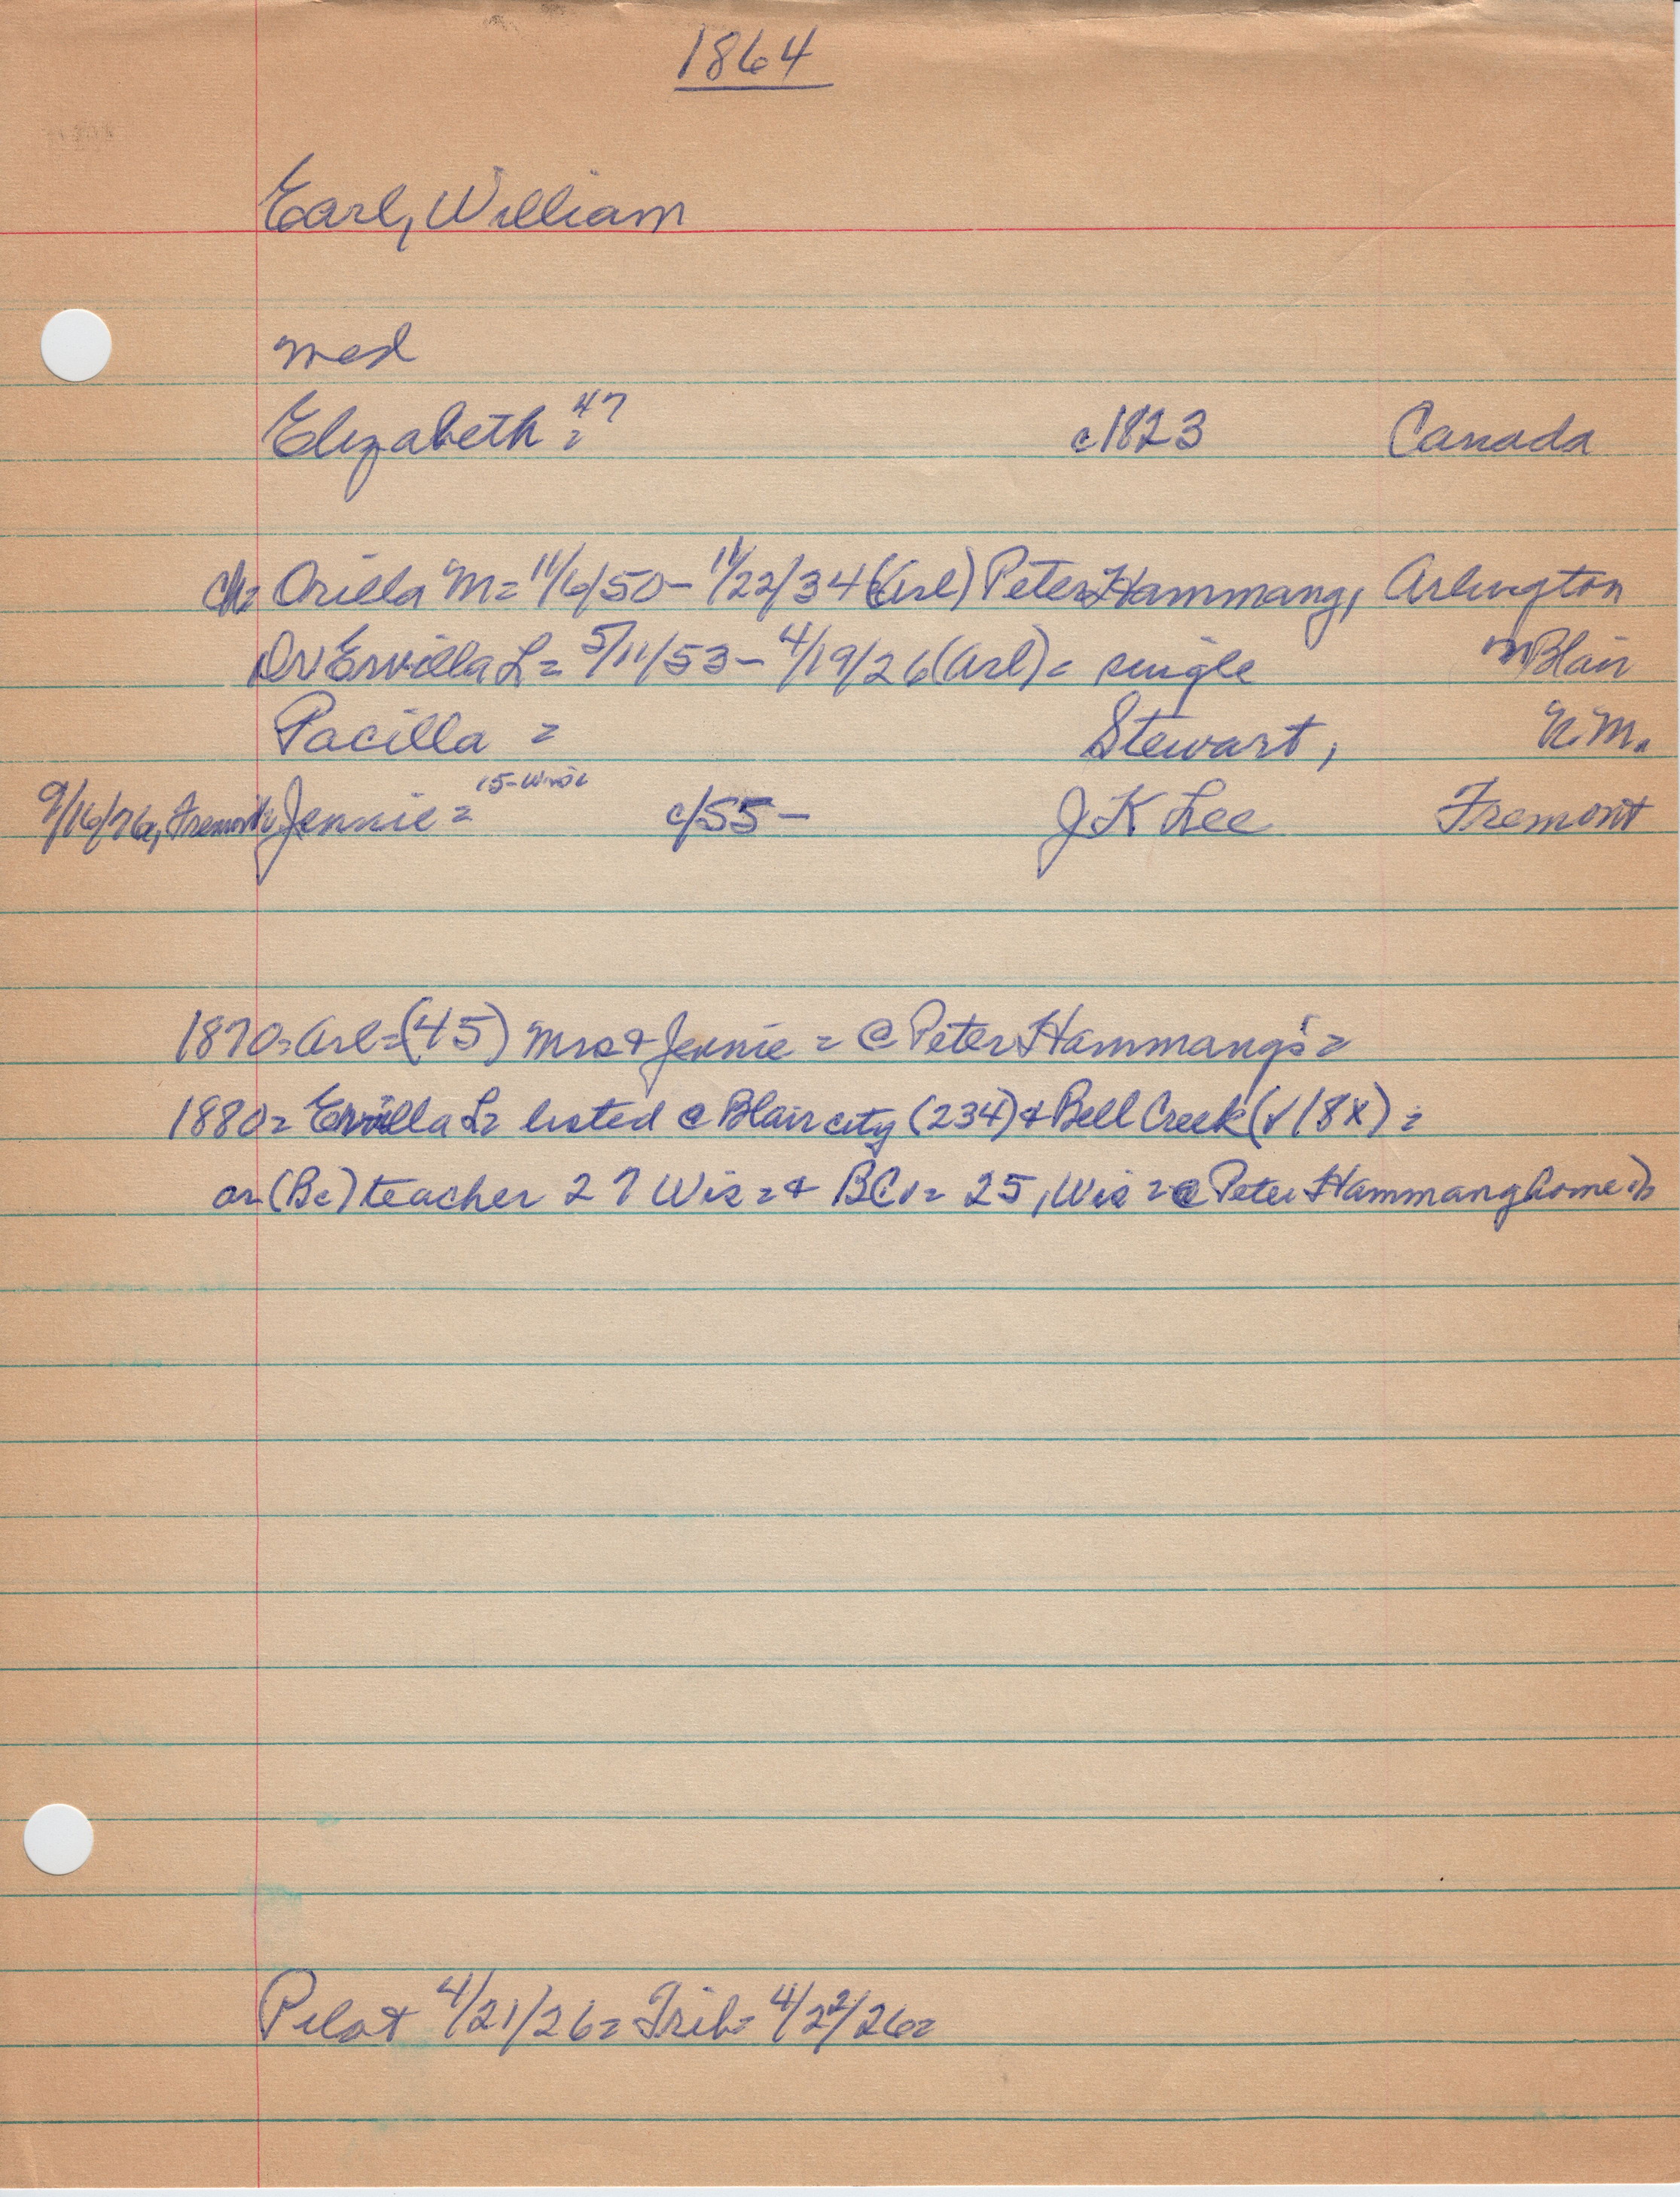 1864
Earl, William
med
Elizabeth = 47 c1823 Canada
ch= Orilla M= 11/6/50 - 11/22/34 (Arl) Peter Hammang, Arlington
Dr Ervilla L= 5/11/53 - 4/19/26 (Arl) = single Blair
Pacilla = Stewart, N.M.
9/16/76, Fremont= Jennie = 15-Wisc c/55 - J K Lee Fremont
1870= Arl= (45) Mrs & Jennie = @ Peter Hammang's =
1880= Ervilla L= listed @ Blair city (234) & Bell Creek (√18x) =
as (Bc) teacher 27 Wis = & BC√= 25, Wis = @ Peter Hammang home
Pilot 4/21/26= Trib= 4/22/26=